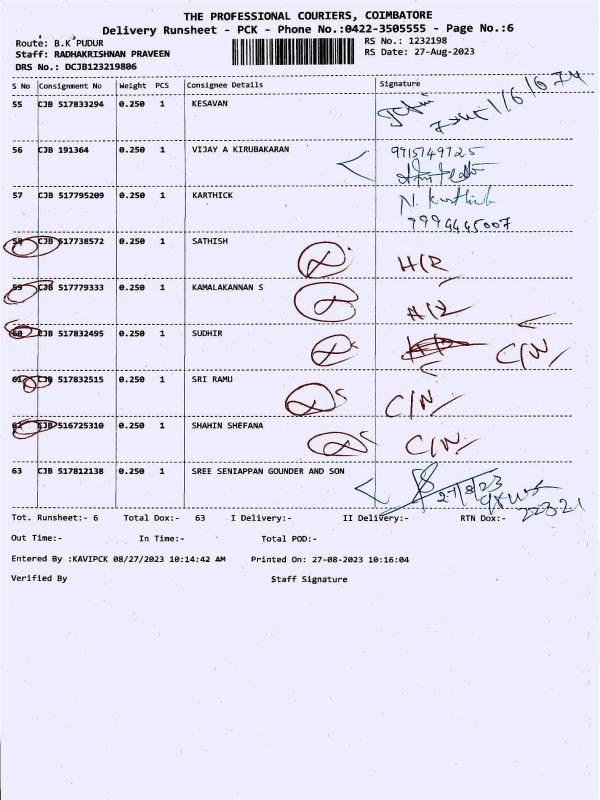 THE PROFESSIONAL COURIERS, COIMBATORE
Delivery Runsheet - PCK - Phone No.:0422-3505555 - Page No.:6
Route: B.K PUDUR
RS No.: 1232198
Staff: RADHAKRISHNAN PRAVEEN
RS Date: 27-Aug-2023
DRS No.: DCJB123219806
S No Consignment No Weight PCS Consignee Details Signature
55 CJB 517833294 0.250 1 KESAVAN
56 CJB 191364 0.250 1 VIJAY A KIRUBAKARAN 9715749725
57 CJB 517795209 0.250 1 KARTHICK N. Karthick
9994445007
58 CJB 517738572 0.250 1 SATHISH H/R
59 CJB 517779333 0.250 1 KAMALAKANNAN S
60 CJB 517832495 0.250 1 SUDHIR C/N
61 CJB 517832515 0.250 1 SRI RAMU C/N
62 CJB 516725310 0.250 1 SHAHIN SHEFANA C/N
63 CJB 517812138 0.250 1 SREE SENIAPPAN GOUNDER AND SON 27/8/23
Tot. Runsheet:- 6 Total Dox:- 63 I Delivery:- II Delivery:- RTN Dox:-
Out Time:- In Time:- Total POD:-
Entered By :KAVIPCK 08/27/2023 10:14:42 AM Printed On: 27-08-2023 10:16:04
Verified By Staff Signature